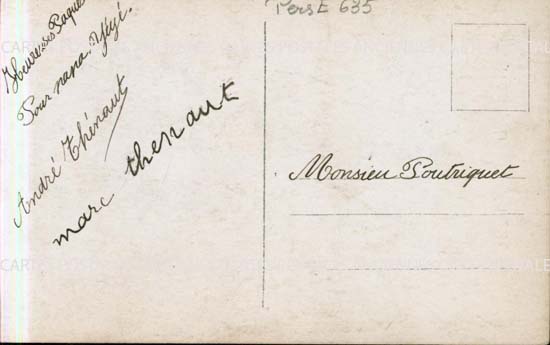 Heureuses Paques
Pour papa Yéyé.
André Thénaut
marc thenaut
Pers E 635
Monsieu Poutriquet